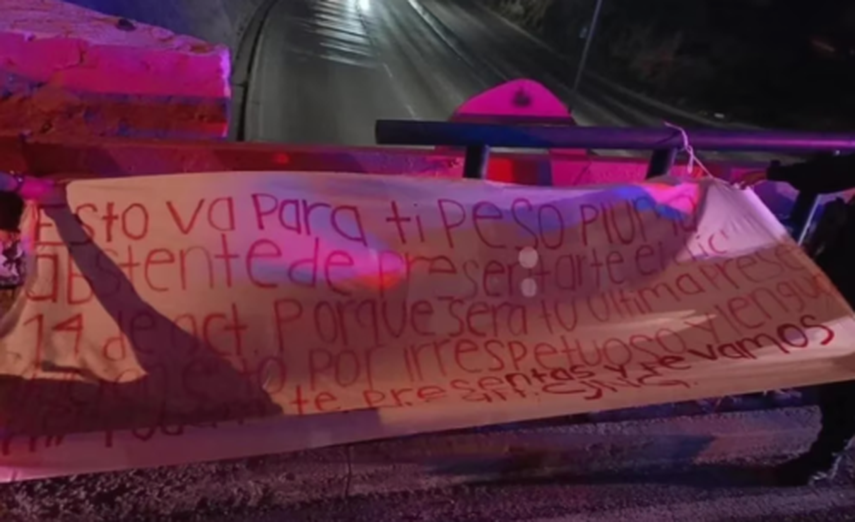 Esto va para ti Peso Pluma
abstente de presentarte el dic
14 de oct. Porque sera tu ultima Prese
por irrespetuoso y lengu
te presentas y te vamos